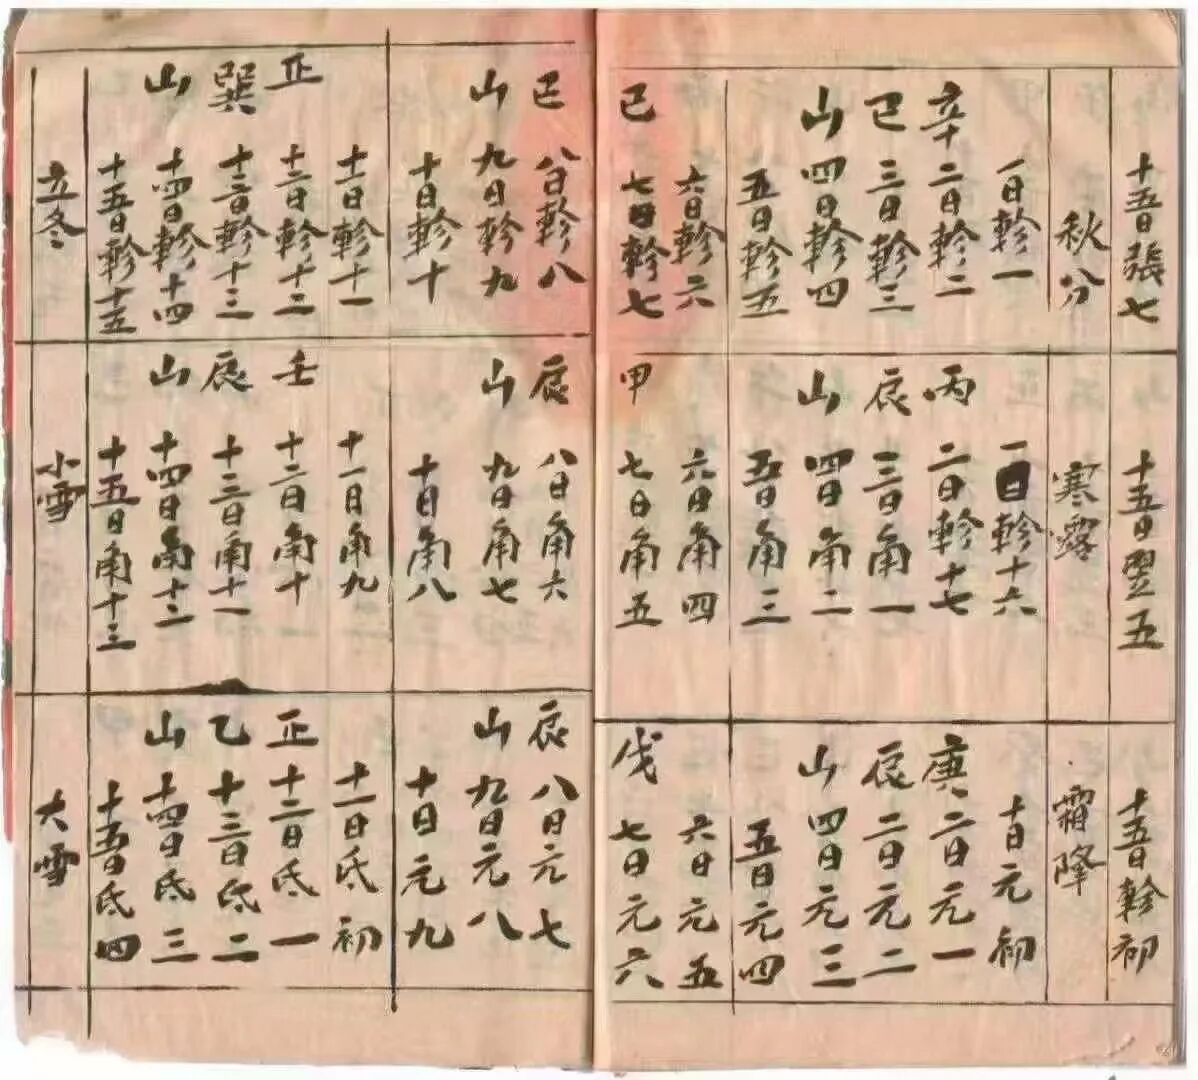 十五日張七
秋分
一日軫一
辛二日軫二
巳三日軫三
山四日軫四
五日軫五
六日軫六
巳七日軫七
十五日翌五
寒露
一日軫十六
丙二日軫十七
辰三日角一
山四日角二
五日角三
六日角四
甲七日角五
十五日軫初
霜降
十日元初
庚二日元一
辰二日元二
山四日元三
五日元四
六日元五
戊七日元六
巳八日軫八
山九日軫九
十日軫十
十一日軫十一
正十二日軫十二
巽十三日軫十三
山十四日軫十四
十五日軫十五
立冬
辰八日角六
山九日角七
十日角八
十一日角九
壬十二日角十
辰十三日角十一
山十四日角十二
十五日角十三
小雪
辰八日元七
山九日元八
十日元九
十一日氐初
正十二日氐一
乙十三日氐二
山十四日氐三
十五日氐四
大雪